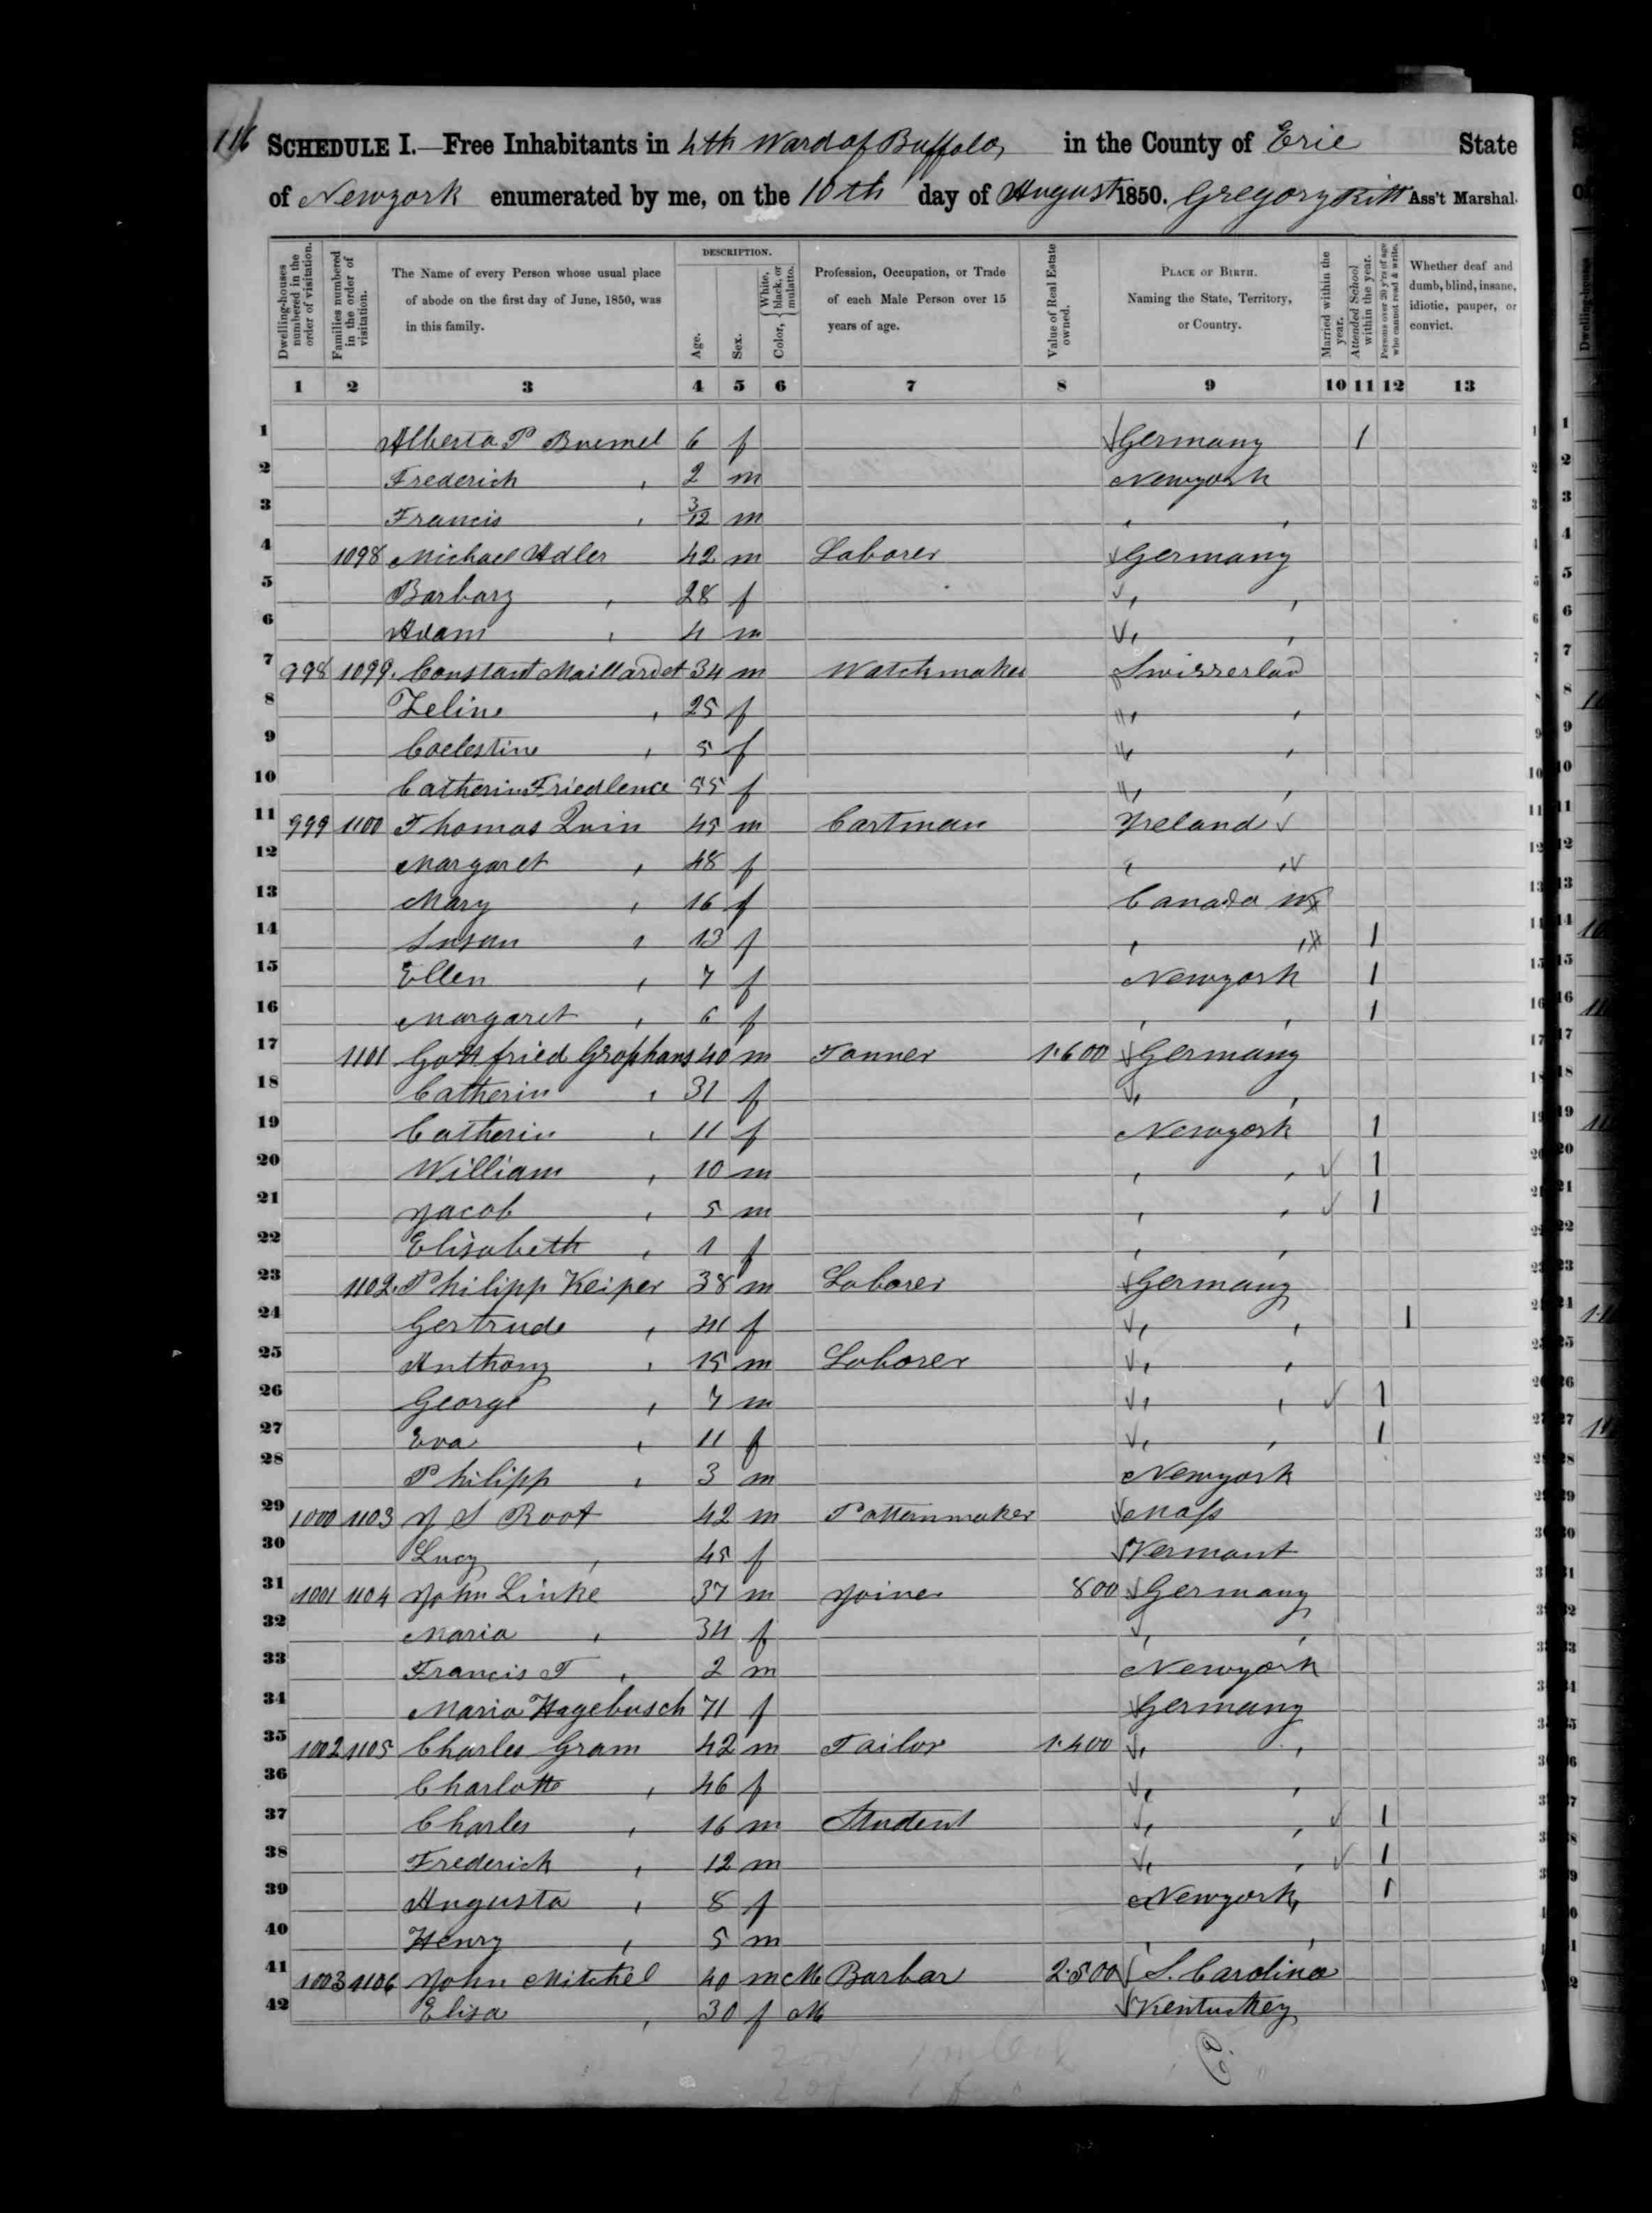 116 SCHEDULE I.—Free Inhabitants in 4th Ward of Buffalo, in the County of Erie State
of Newyork enumerated by me, on the 10th day of August 1850. Gregory Ritt Ass't Marshal.
Dwelling-houses numbered in the order of visitation.
Families numbered in the order of visitation.
The Name of every Person whose usual place of abode on the first day of June, 1850, was in this family.
DESCRIPTION.
Age.
Sex.
Color, White, black, or mulatto.
Profession, Occupation, or Trade of each Male Person over 15 years of age.
Value of Real Estate owned.
PLACE OF BIRTH. Naming the State, Territory, or Country.
Married within the year.
Attended School within the year.
Persons over 20 y'rs of age who cannot read & write.
Whether deaf and dumb, blind, insane, idiotic, pauper, or convict.
1 2 3 4 5 6 7 8 9 10 11 12 13
1 Alberta P 6 f Germany 1
2 Frederich , 2 m Newyork
3 Francis , 3/12 m , ,
4 1098 Michael Adler 42 m Laborer Germany
5 Barbary , 28 f , ,
6 Adam , 4 m , ,
7 998 1099 Constant Maillardet 34 m Watchmaker Swisserland
8 Zeline , 25 f , ,
9 Coelestine , 5 f , ,
10 Catherin Friedlence 55 f , ,
11 999 1100 Thomas Quin 45 m Cartman Yreland
12 Margaret , 48 f , ,
13 Mary , 16 f Canada W
14 Susan , 13 f , , 1
15 Ellen , 7 f Newyork 1
16 Margaret , 6 f , , 1
17 1101 Gottfried Grophans 40 m Tanner 1.600 Germany
18 Catherin , 31 f , ,
19 Catherin , 11 f Newyork 1
20 William , 10 m , , 1
21 Yacob , 5 m , , 1
22 Elisabeth , 1 f , ,
23 1102 Philipp Keiper 38 m Laborer Germany
24 Gertrude , 41 f , , 1
25 Anthony , 15 m Laborer , ,
26 George , 7 m , , 1
27 Eva , 11 f , , 1
28 Philipp , 3 m Newyork
29 1000 1103 Y S Root 42 m Patternmaker Mass
30 Lucy , 45 f Vermont
31 1001 1104 John Linke 37 m Yoiner 800 Germany
32 Maria , 34 f , ,
33 Francis T , 2 m Newyork
34 Maria Hagebusch 71 f Germany
35 1002 1105 Charles Gram 42 m Tailor 1.400 , ,
36 Charlotte , 46 f , ,
37 Charles , 16 m Student , , 1
38 Frederick , 12 m , , 1
39 Augusta , 8 f Newyork 1
40 Henry , 5 m , ,
41 1003 1106 John Mitchel 40 m M Barbar 2.500 S. Carolina
42 Elisa , 30 f M Kentuckey